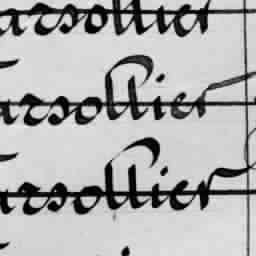 arsollier
arsollier
arsollier